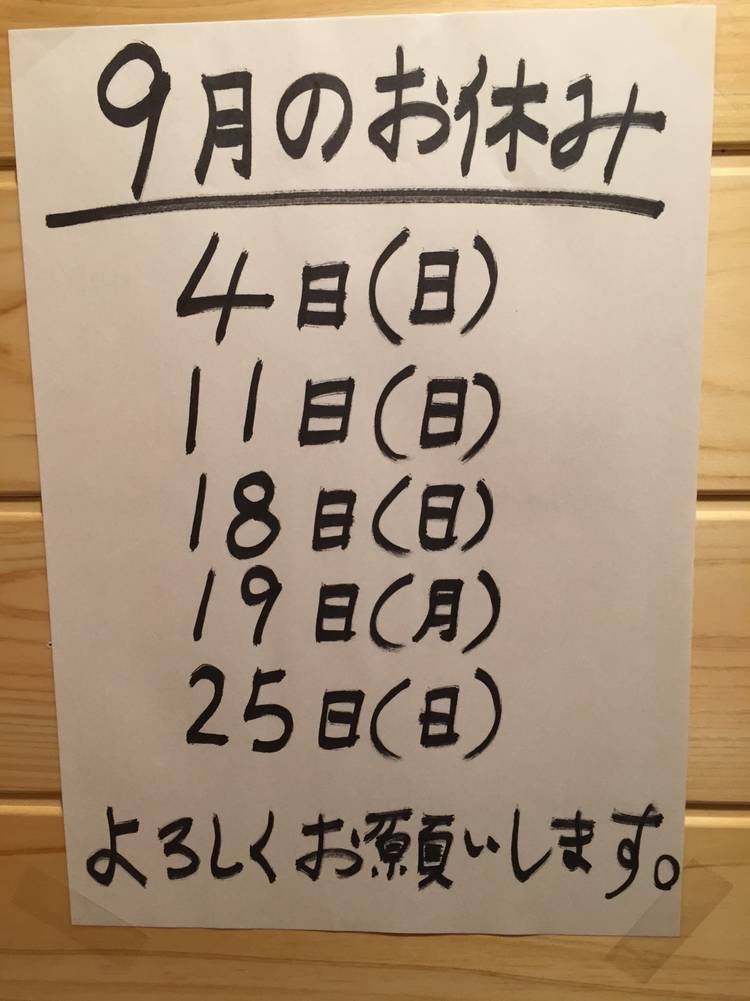 9月のお休み
4日(日)
11日(日)
18日(日)
19日(月)
25日(日)
よろしくお願いします。